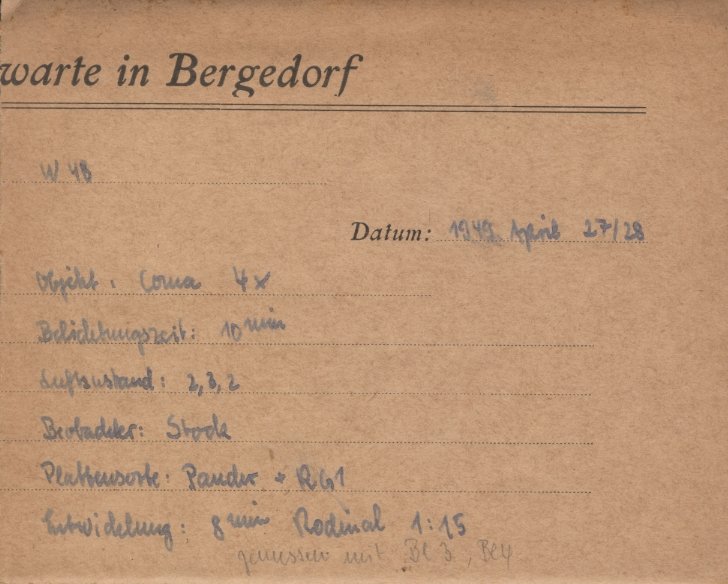 warte in Bergedorf
W 48
Datum: 1949 April 27/28
Objekt: Coma 4x
Belichtungszeit: 10 min
Luftzustand: 2, 3, 2
Beobachter: Stock
Plattensorte: Pander + RG1
Entwicklung: 8 min Rodinal 1:15
gemessen mit Be 3, Be 4